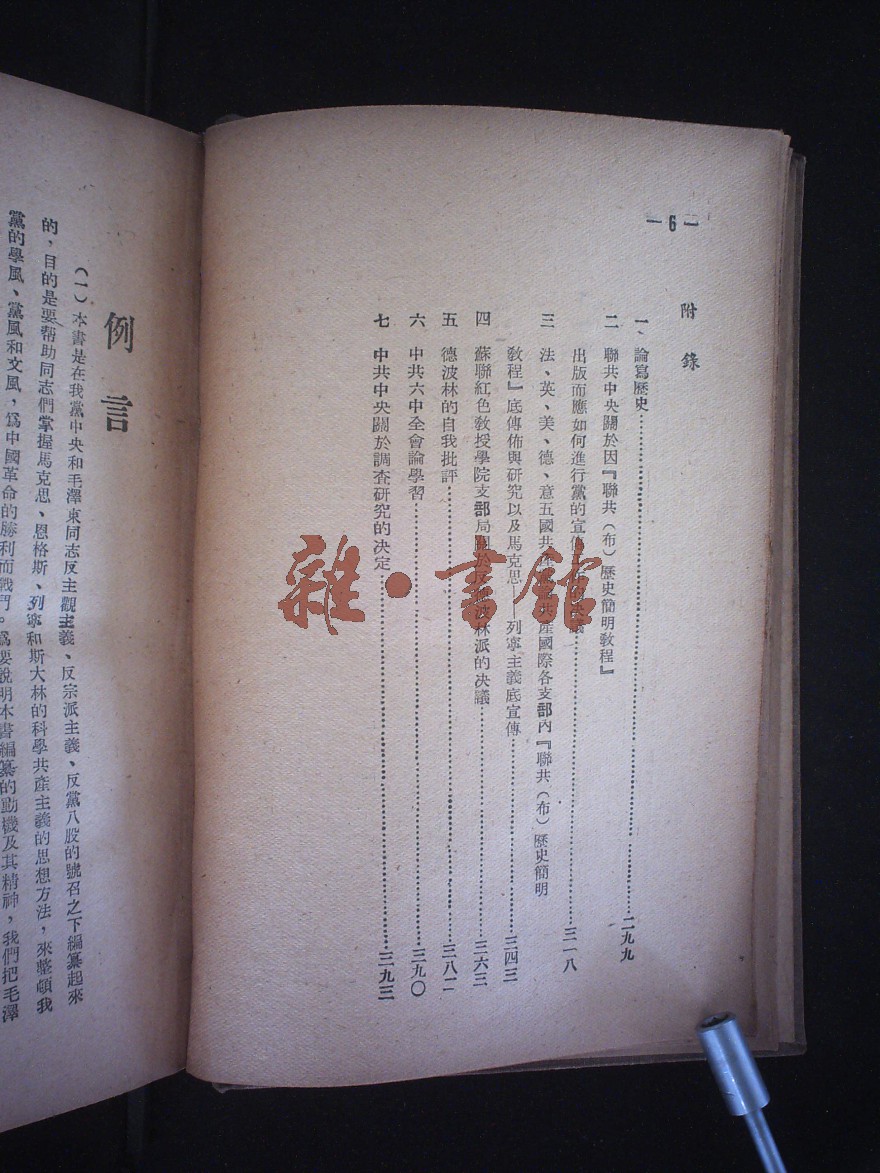 —6—
附錄
一、論寫歷史……二九九
二 聯共中央關於因『聯共(布)歷史簡明教程』
出版而應如何進行黨的宣傳的決議……三一八
三 法、英、美、德、意五國共產黨共產國際各支部內『聯共(布)歷史簡明
教程』底傳佈與研究以及馬克思——列寧主義底宣傳……三四三
四 蘇聯紅色教授學院支部局關於反德波林派的决議……三六三
五 德波林的自我批評……三八二
六 中共六中全會論學習……三九〇
七 中共中央關於調查研究的决定……三九三
例言
(一)本書是在我黨中央和毛澤東同志反主觀主義、反宗派主義、反黨八股的號召之下編纂起來
的，目的是要幇助同志們掌握馬克思、恩格斯、列寧和斯大林的科學共產主義的思想方法，來整頓我
黨的學風、黨風和文風，爲中國革命的勝利而戰鬥。爲要說明本書編纂的動機及其精神，我們把毛澤
雜·書館